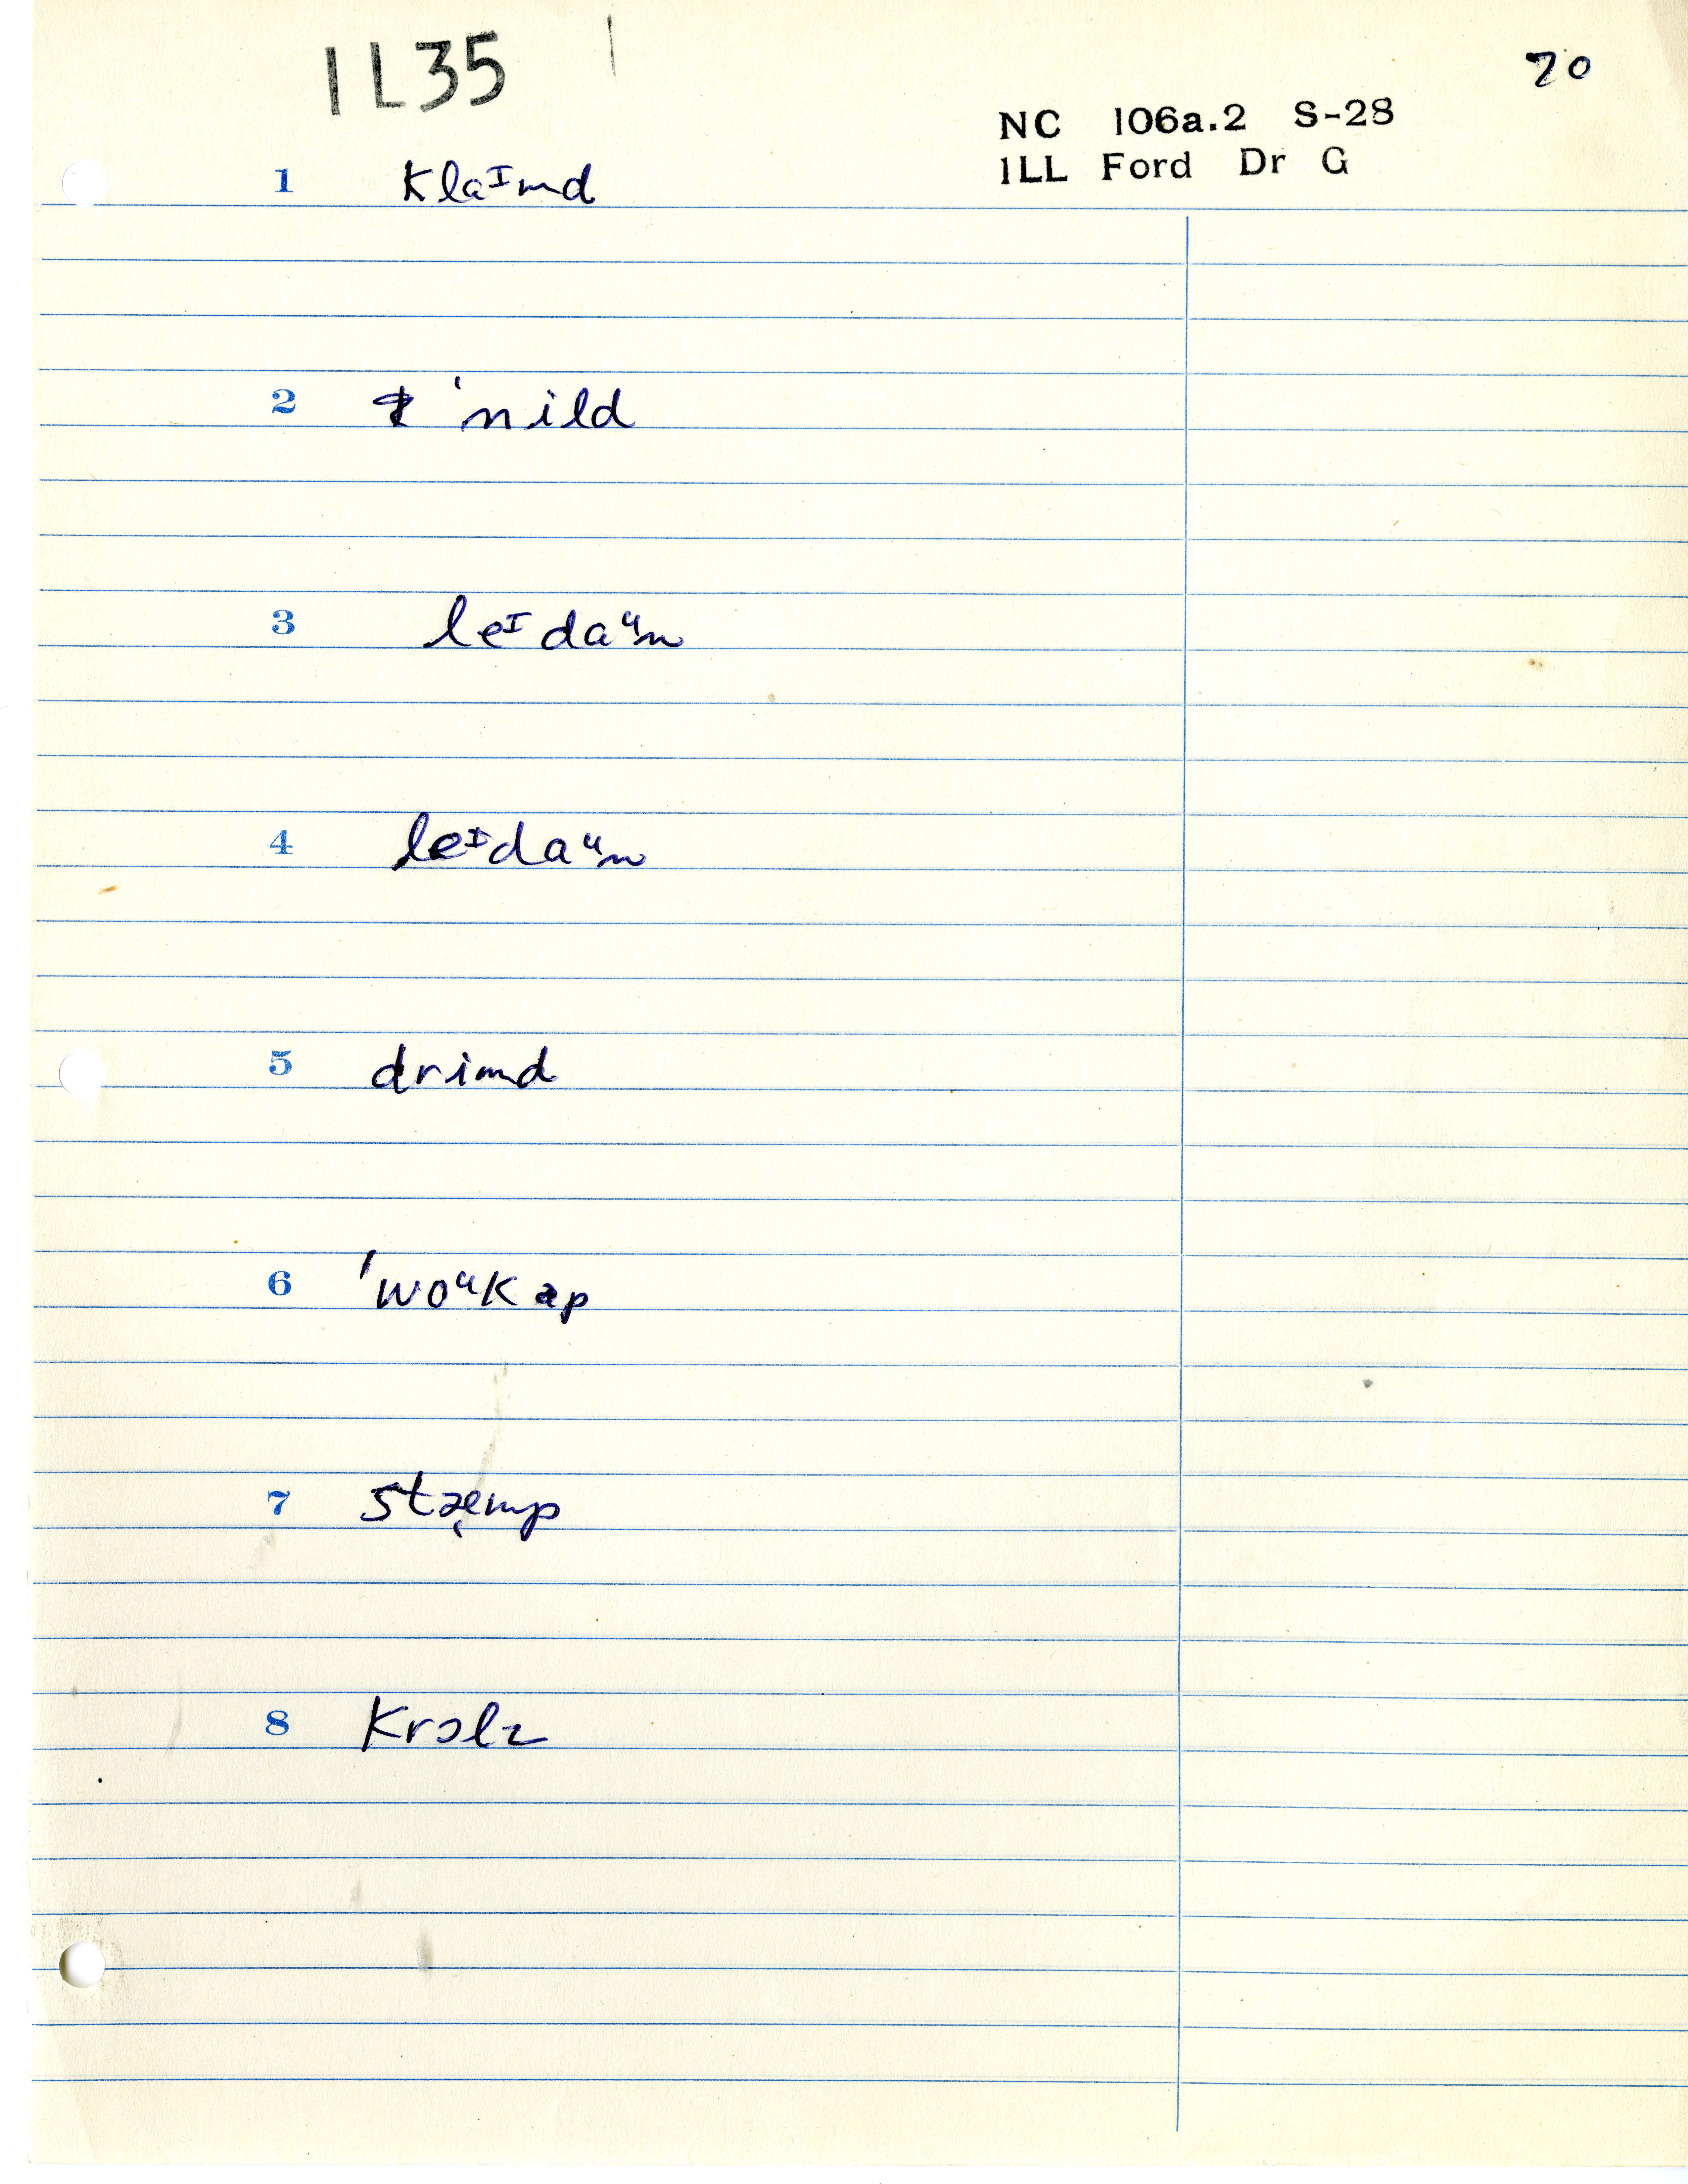 1L35
70
NC 106a.2 S-28
1LL Ford Dr G
1 klaᴵmd
2 ˈnild
3 leᴵdaᵘn
4 leᴵdaᵘn
5 drimd
6 ˈwoᵘkəp
7 stæ̨mp
8 krɔlz